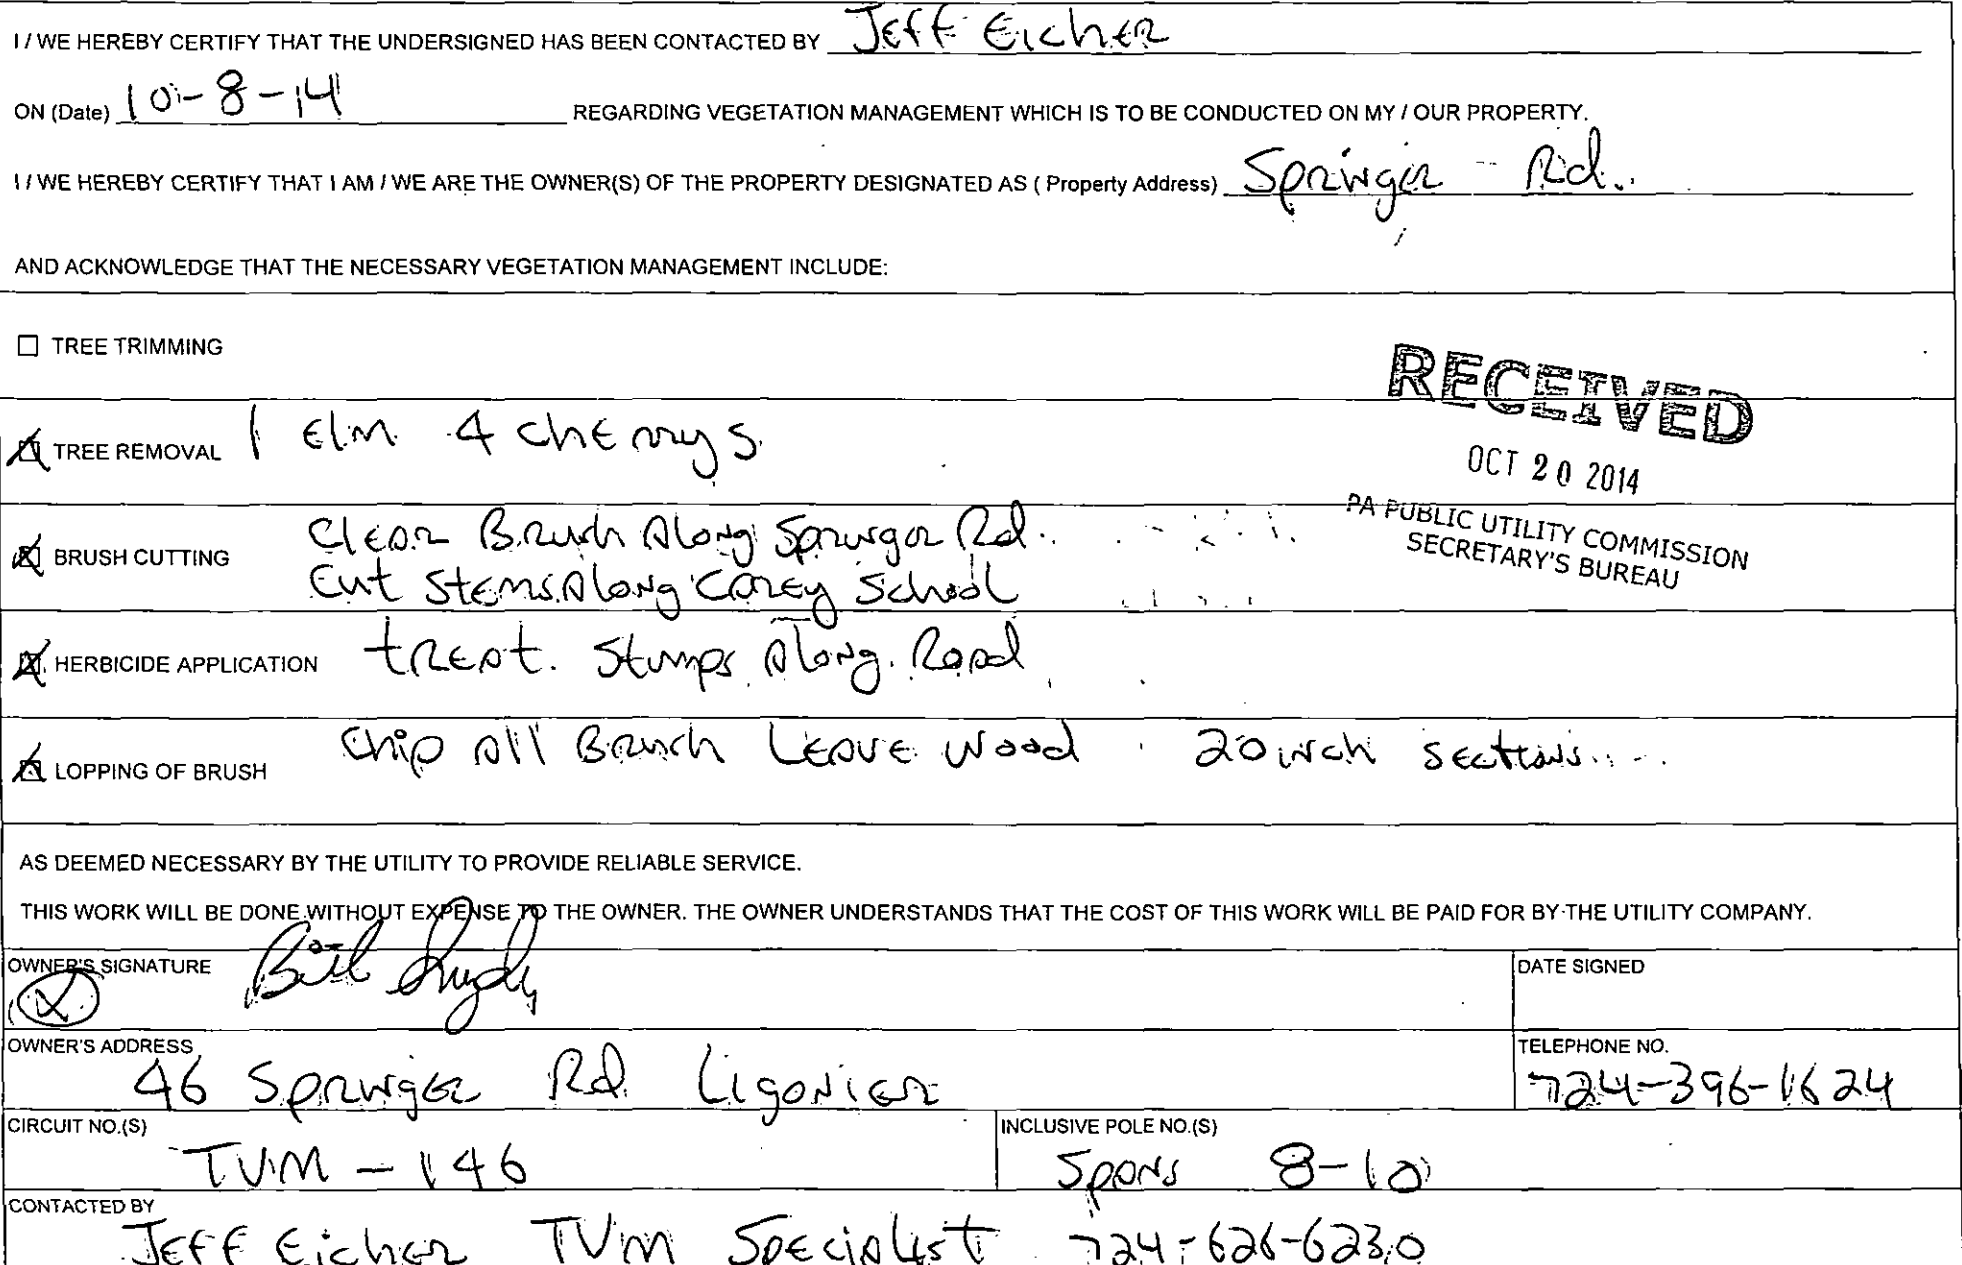 I / WE HEREBY CERTIFY THAT THE UNDERSIGNED HAS BEEN CONTACTED BY Jeff Eicher
ON (Date) 10-8-14 REGARDING VEGETATION MANAGEMENT WHICH IS TO BE CONDUCTED ON MY / OUR PROPERTY.
I / WE HEREBY CERTIFY THAT I AM / WE ARE THE OWNER(S) OF THE PROPERTY DESIGNATED AS ( Property Address) Springer Rd.
AND ACKNOWLEDGE THAT THE NECESSARY VEGETATION MANAGEMENT INCLUDE:
TREE TRIMMING
RECEIVED
OCT 20 2014
PA PUBLIC UTILITY COMMISSION
SECRETARY'S BUREAU
TREE REMOVAL 1 Elm 4 cherrys
BRUSH CUTTING Clear Brush Along Springer Rd.
Cut Stems Along Corey School
HERBICIDE APPLICATION treat Stumps Along Road
LOPPING OF BRUSH Chip All Brush Leave Wood 20 inch sections
AS DEEMED NECESSARY BY THE UTILITY TO PROVIDE RELIABLE SERVICE.
THIS WORK WILL BE DONE WITHOUT EXPENSE TO THE OWNER. THE OWNER UNDERSTANDS THAT THE COST OF THIS WORK WILL BE PAID FOR BY THE UTILITY COMPANY.
OWNER'S SIGNATURE X Bill
DATE SIGNED
OWNER'S ADDRESS 46 Springer Rd Ligonier
TELEPHONE NO. 724-396-1624
CIRCUIT NO.(S) TVM - 146
INCLUSIVE POLE NO.(S) Spans 8-10
CONTACTED BY Jeff Eicher TVM Specialist 724-626-6230